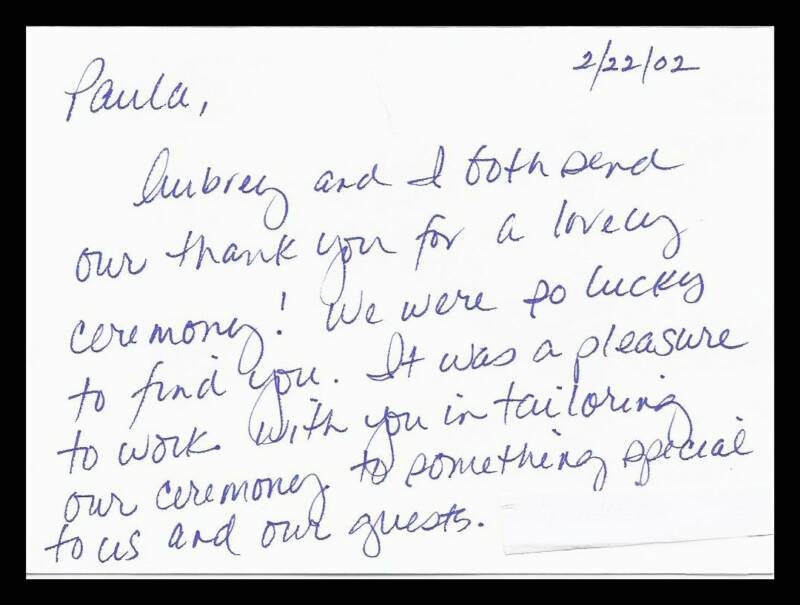 2/22/02
Paula,
Aubrey and I both send
our thank you for a lovely
ceremony! We were so lucky
to find you. It was a pleasure
to work with you in tailoring
our ceremony to something special
to us and our guests.